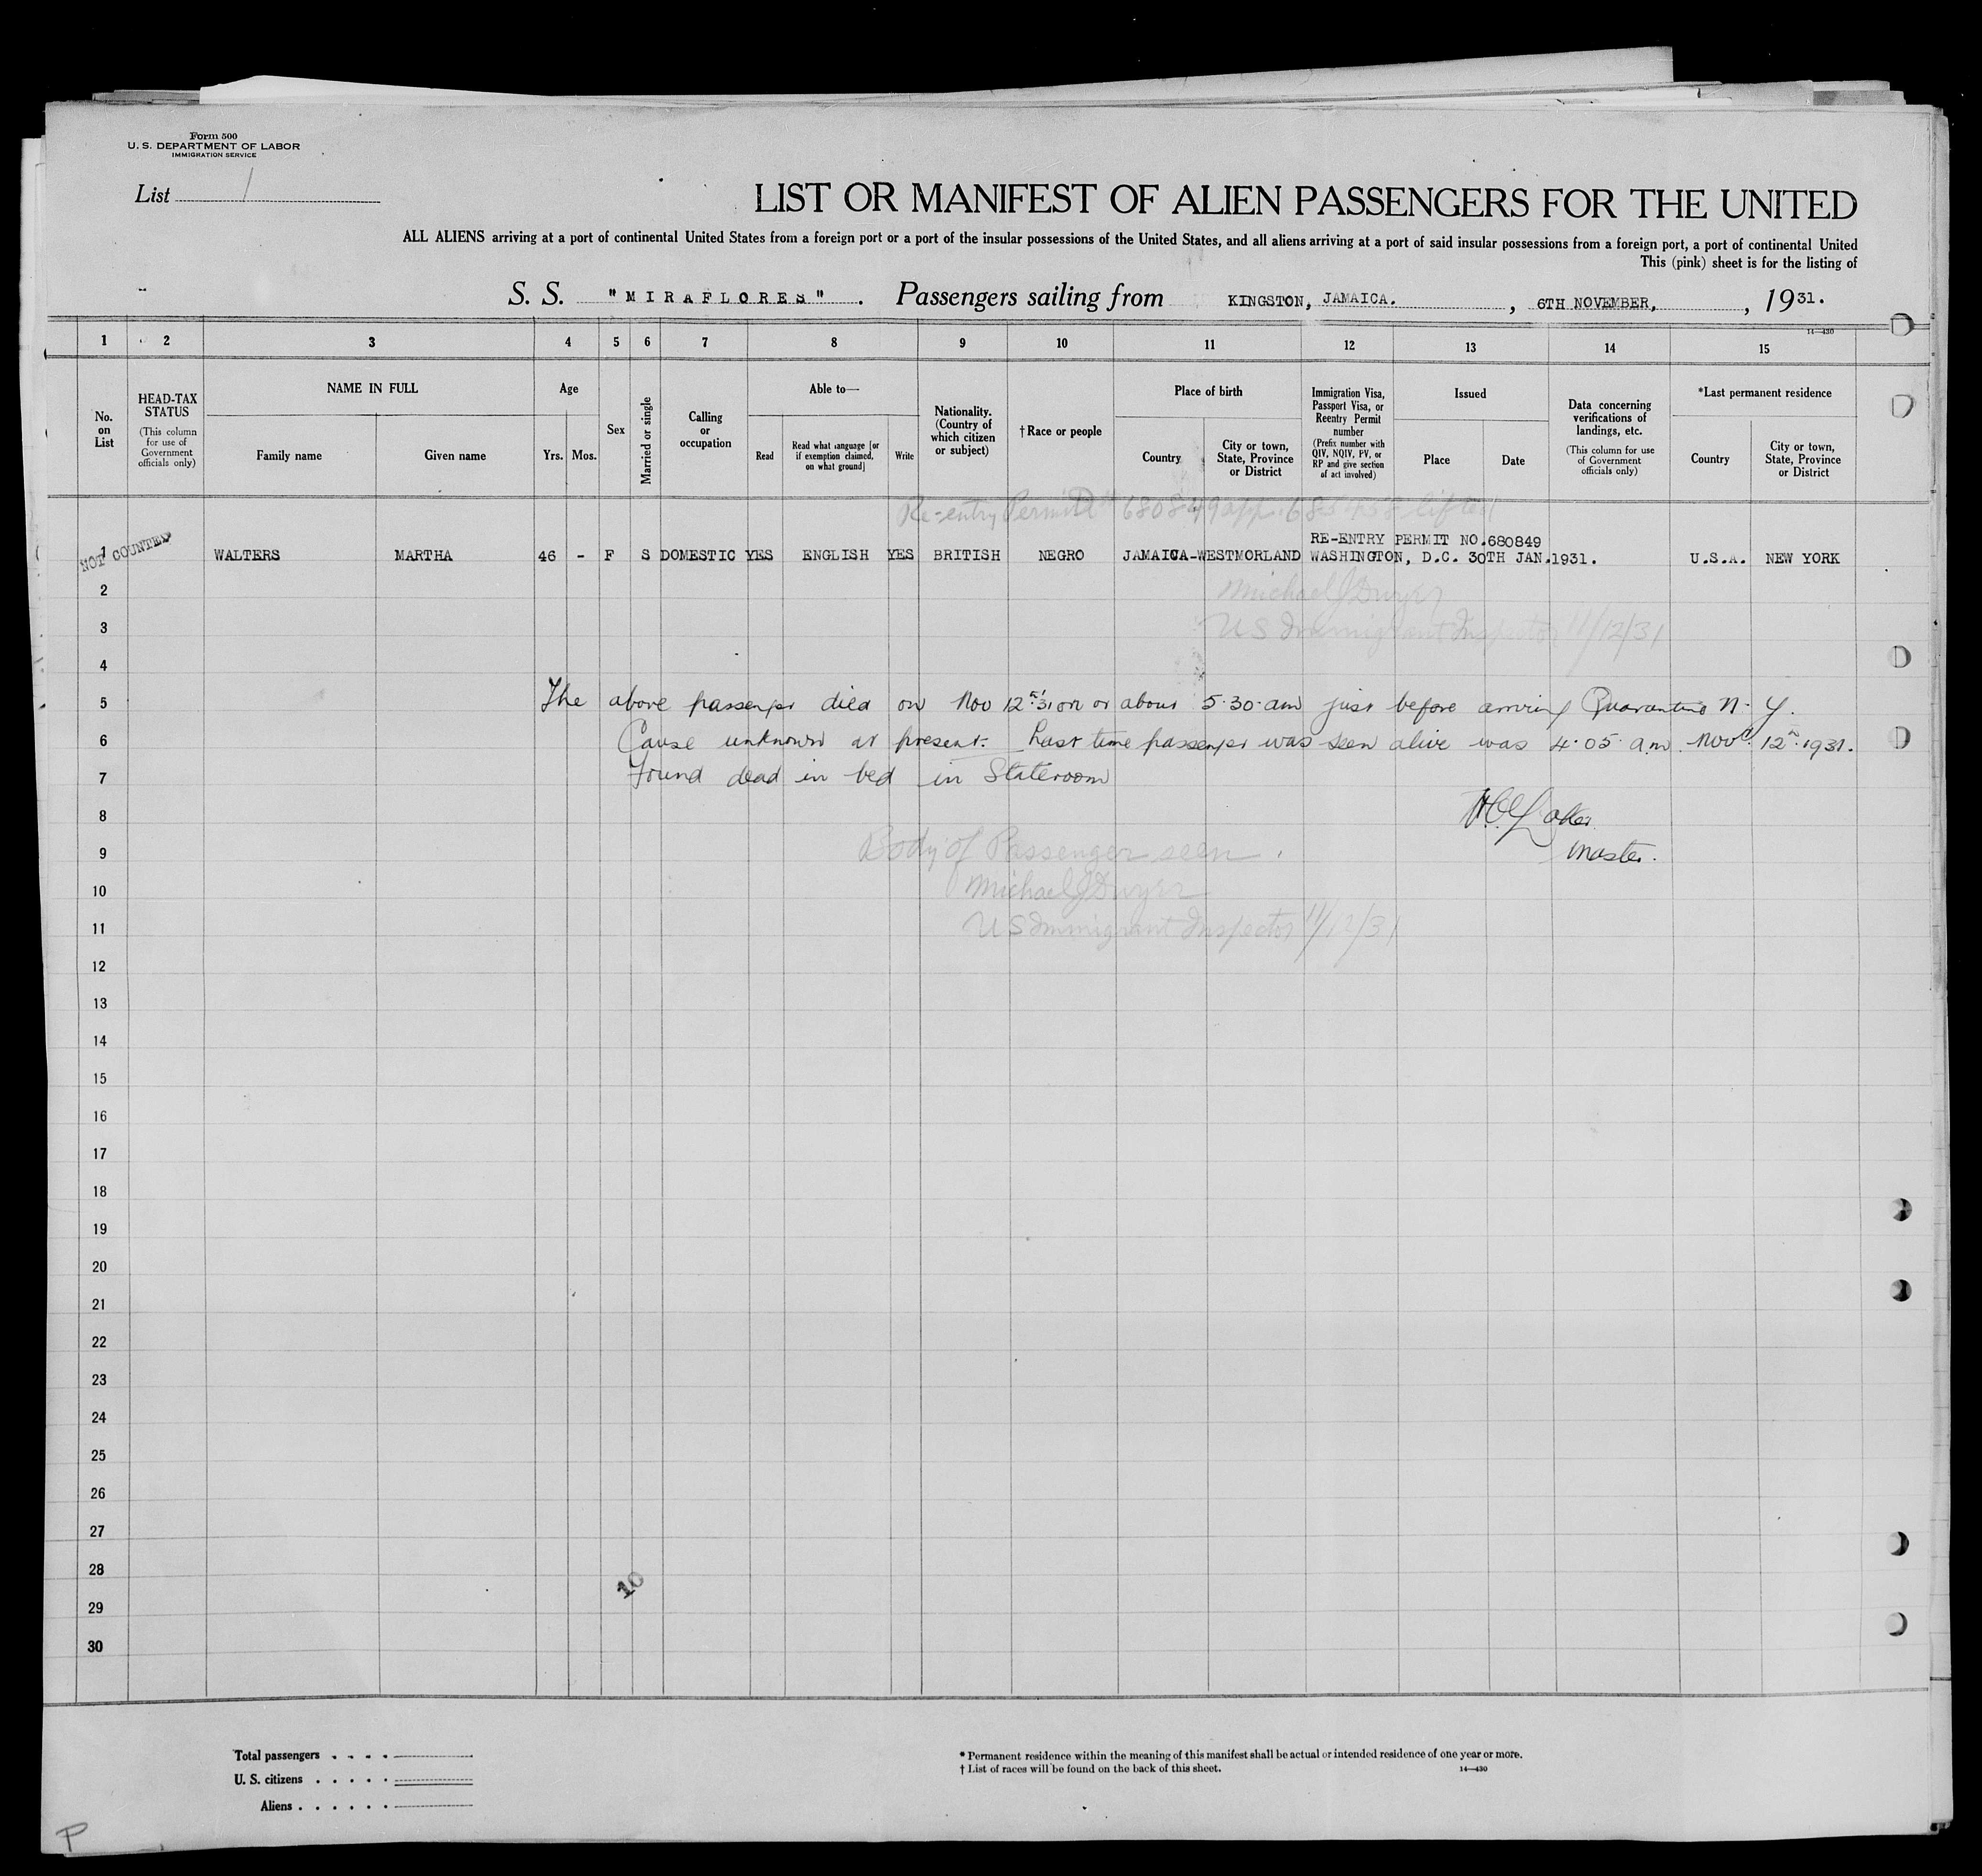 Form 500
U. S. DEPARTMENT OF LABOR
IMMIGRATION SERVICE
List 1
LIST OR MANIFEST OF ALIEN PASSENGERS FOR THE UNITED
ALL ALIENS arriving at a port of continental United States from a foreign port or a port of the insular possessions of the United States, and all aliens arriving at a port of said insular possessions from a foreign port, a port of continental United
This (pink) sheet is for the listing of
S. S. "MIRAFLORES". Passengers sailing from KINGSTON, JAMAICA. , 6TH NOVEMBER, , 1931.
14—430
1 2 3 4 5 6 7 8 9 10 11 12 13 14 15
No. on List
HEAD-TAX STATUS (This column for use of Government officials only)
NAME IN FULL
Family name
Given name
Age
Yrs.
Mos.
Sex
Married or single
Calling or occupation
Able to—
Read
Read what language [or if exemption claimed, on what ground]
Write
Nationality. (Country of which citizen or subject)
†Race or people
Place of birth
Country
City or town, State, Province or District
Immigration Visa, Passport Visa, or Reentry Permit number (Prefix number with QIV, NQIV, PV, or RP and give section of act involved)
Issued
Place
Date
Data concerning verifications of landings, etc. (This column for use of Government officials only)
*Last permanent residence
Country
City or town, State, Province or District
Re-entry Permit # 680849 app. lifted
RE-ENTRY PERMIT NO.680849
NOT COUNTED
1 WALTERS MARTHA 46 - F S DOMESTIC YES ENGLISH YES BRITISH NEGRO JAMAICA-WESTMORLAND WASHINGTON, D.C. 30TH JAN.1931. U.S.A. NEW YORK
2 Michael J Dwyer
3 US Immigrant Inspector 11/12/31
4
5 The above passenger died on Nov 12th '31 on or about 5.30.am just before arriving Quarantine N. Y.
6 Cause unknown at present. Last time passenger was seen alive was 4.05 a.m. Novr 12th 1931.
7 Found dead in bed in Stateroom
8
9 Body of Passenger seen.
Master.
10 Michael J Dwyer
11 US Immigrant Inspector 11/12/31
12
13
14
15
16
17
18
19
20
21
22
23
24
25
26
27
28
10
29
30
Total passengers . . . .
U. S. citizens . . . . .
Aliens . . . . . .
* Permanent residence within the meaning of this manifest shall be actual or intended residence of one year or more.
† List of races will be found on the back of this sheet.
14—430
P